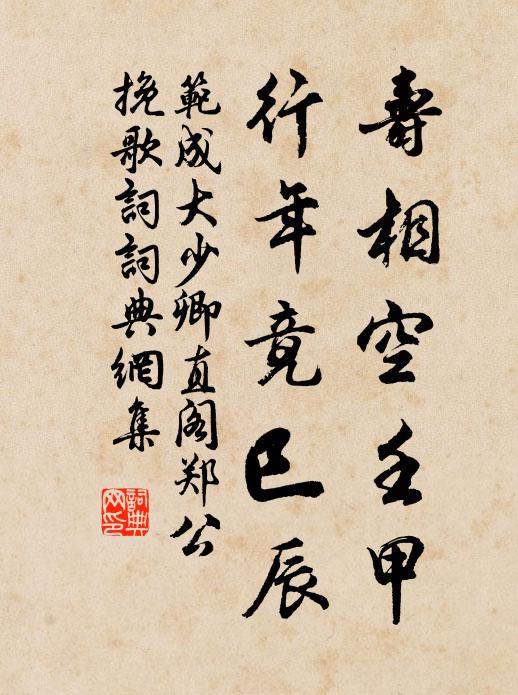 壽相空壬甲
行年竟巳辰
範成大少卿直阁郑公
挽歌詞詞典網集
詞典
网印